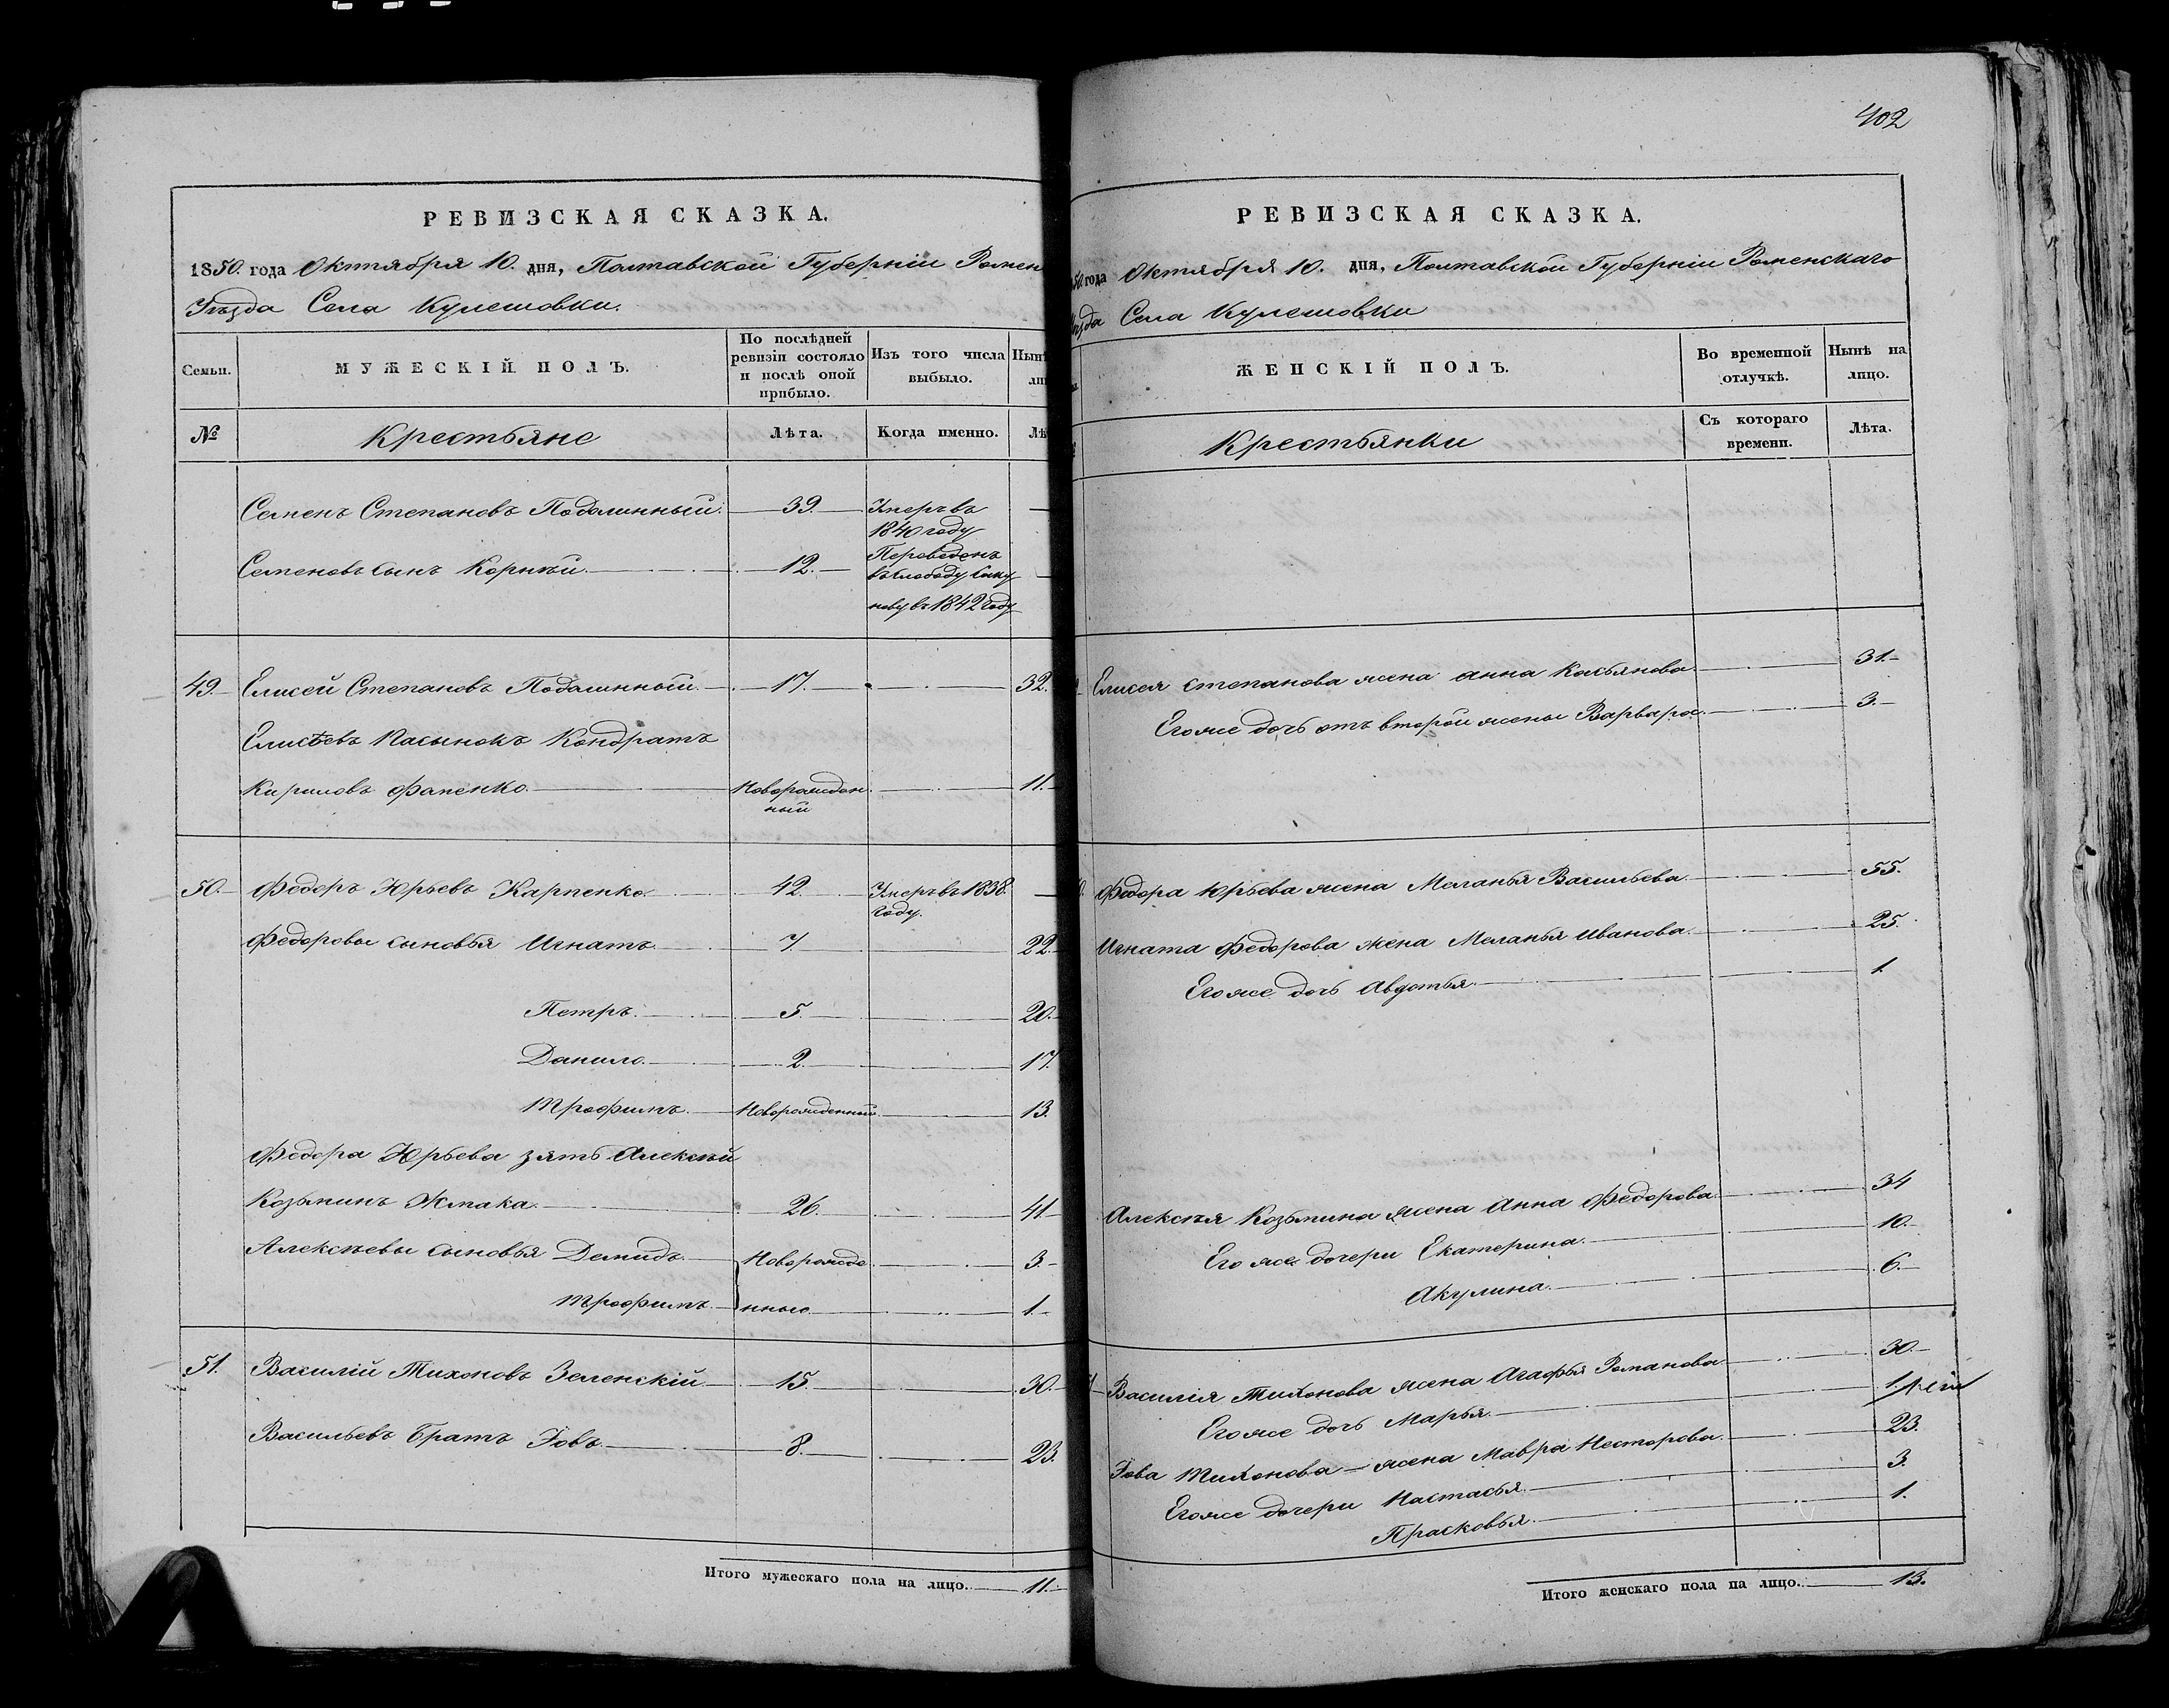 РЕВИЗСКАЯ СКАЗКА.
1850. года Октября 10. дня, Полтавской Губерніи Ромен
Уѣзда Села Кулешовки.
Семьи.
МУЖЕСКІЙ ПОЛЪ.
По послѣдней
ревизіи состояло
и послѣ оной
прибыло.
Изъ того числа
выбыло.
Нынѣ
ли
№
Крестьяне
Лѣта.
Когда именно.
Лѣ
Семенъ Степановъ Подолинный. 39. Умеръ въ
1840 году
Семеновъ сынъ Корнѣй. 12. Переведенъ
въ слободу
нову въ 1842 году
49. Елисей Степановъ Подолинный. 17. 32.
Елисѣевъ пасынокъ Кондратъ
Кириловъ Фапенко. Новорожден 11.
ный
50. Федоръ Юрьевъ Карпенко. 42. Умеръ въ 1838.
году.
Федоровы сыновья Игнатъ. 7. 22.
Петръ. 5. 20.
Данило. 2. 17.
Трофимъ. Новорожденный. 13.
Федора Юрьева зять Алексѣй
Козьминъ Жмака. 26. 41
Алексѣевы сыновья Демидъ. Новорожде 3.
Трофимъ. нные. 1.
51. Василій Тихоновъ Зеленскій 15. 30.
Васильевъ братъ Іовъ. 8. 23.
Итого мужескаго пола на лицо. 11.
402
РЕВИЗСКАЯ СКАЗКА.
50. года Октября 10. дня, Полтавской Губерніи Роменскаго
ѣзда Села Кулешовки
ЖЕНСКІЙ ПОЛЪ.
Во временной
отлучкѣ.
Нынѣ на
лицо.
Крестьянки
Съ котораго
времени.
Лѣта.
Елисея Степанова жена Анна Касьянова. 31.
Его же дочь отъ второй жены Варвара. 3.
Федора Юрьева жена Меланья Васильева. 55.
Игната Федорова жена Меланья Иванова. 25.
Его же дочь Авдотья. 1.
Алексѣя Козьмина жена Анна Федорова. 34
Его же дочери Екатерина. 10.
Акулина. 6.
Василія Тихонова жена Агафья Романова 30.
Его же дочь Марья. 1
Іова Тихонова жена Мавра Несторова. 23.
Его же дочери Настасья. 3.
Прасковья. 1.
Итого женскаго пола на лицо. 13.